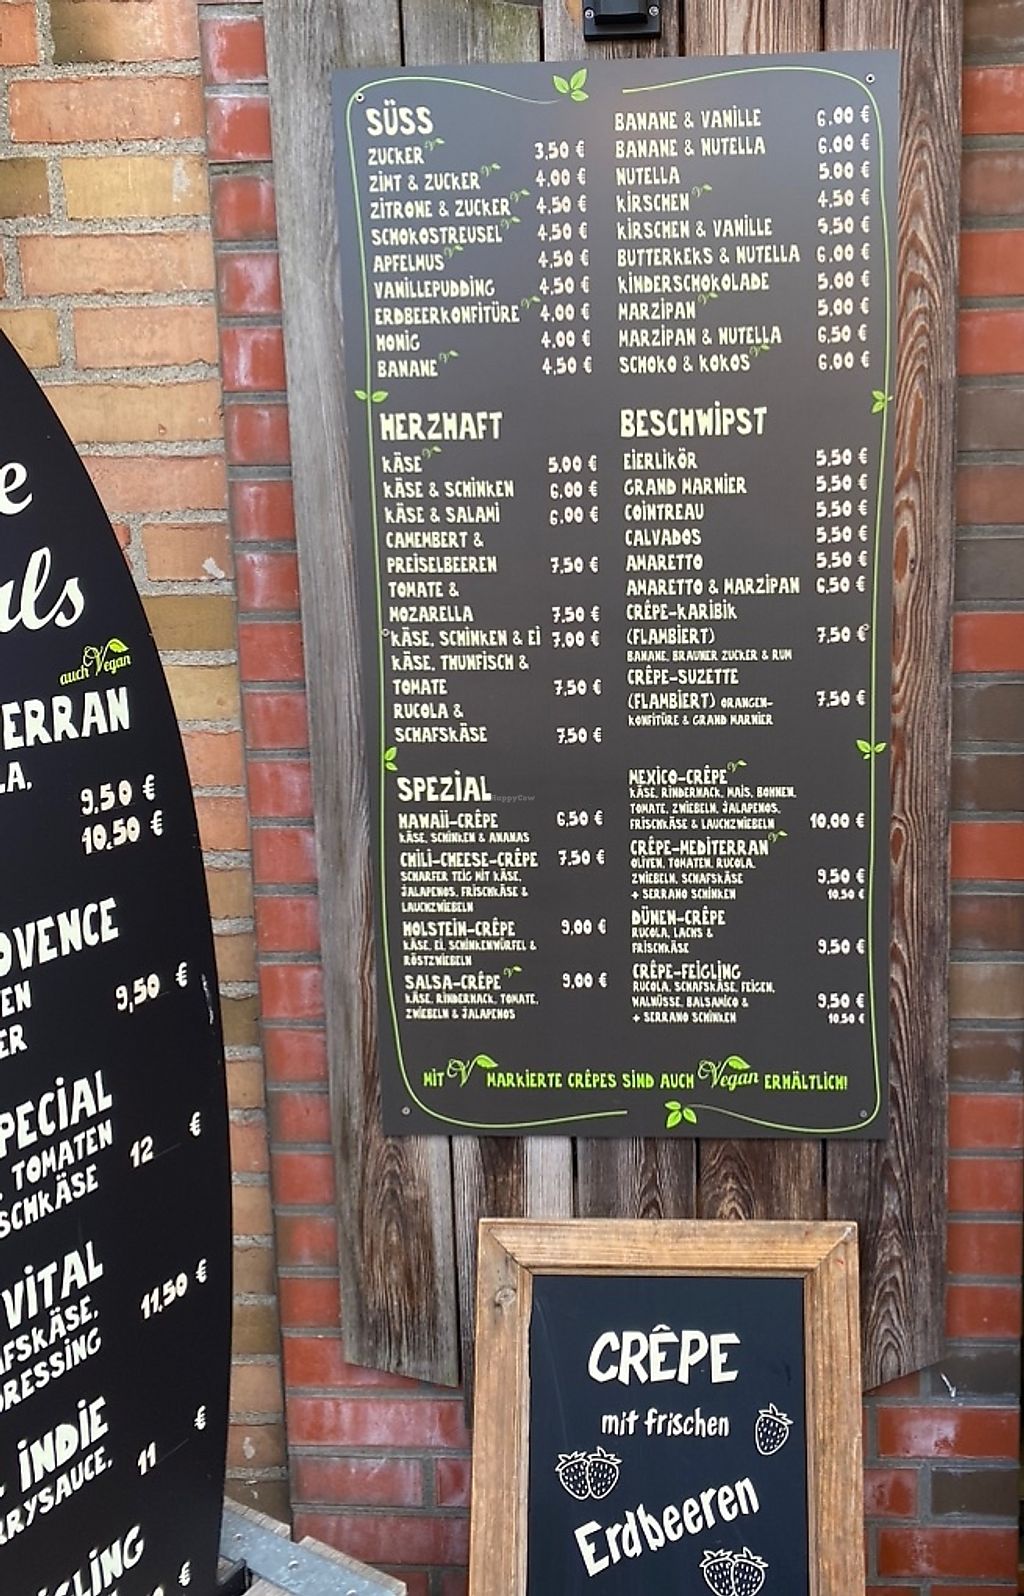 SÜSS
ZUCKER 3,50 €
ZIMT & ZUCKER 4,00 €
ZITRONE & ZUCKER 4,50 €
SCHOKOSTREUSEL 4,50 €
APFELMUS 4,50 €
VANILLEPUDDING 4,50 €
ERDBEERKONFITÜRE 4,00 €
HONIG 4,00 €
BANANE 4,50 €
BANANE & VANILLE 6,00 €
BANANE & NUTELLA 6,00 €
NUTELLA 5,00 €
KIRSCHEN 4,50 €
KIRSCHEN & VANILLE 5,50 €
BUTTERKEKS & NUTELLA 6,00 €
KINDERSCHOKOLADE 5,00 €
MARZIPAN 5,00 €
MARZIPAN & NUTELLA 6,50 €
SCHOKO & KOKOS 6,00 €
HERZHAFT
KÄSE 5,00 €
KÄSE & SCHINKEN 6,00 €
KÄSE & SALAMI 6,00 €
CAMEMBERT &
PREISELBEEREN 7,50 €
TOMATE &
MOZARELLA 7,50 €
KÄSE, SCHINKEN & EI 7,00 €
KÄSE, THUNFISCH &
TOMATE 7,50 €
RUCOLA &
SCHAFSKÄSE 7,50 €
BESCHWIPST
EIERLIKÖR 5,50 €
GRAND MARNIER 5,50 €
COINTREAU 5,50 €
CALVADOS 5,50 €
AMARETTO 5,50 €
AMARETTO & MARZIPAN 6,50 €
CRÊPE-KARIBIK
(FLAMBIERT) 7,50 €
BANANE, BRAUNER ZUCKER & RUM
CRÊPE-SUZETTE
(FLAMBIERT) ORANGEN- 7,50 €
KONFITÜRE & GRAND MARNIER
SPEZIAL
HAWAII-CRÊPE 6,50 €
KÄSE, SCHINKEN & ANANAS
CHILI-CHEESE-CRÊPE 7,50 €
SCHARFER TEIG MIT KÄSE,
JALAPENOS, FRISCHKÄSE &
LAUCHZWIEBELN
HOLSTEIN-CRÊPE 9,00 €
KÄSE, EI, SCHINKENWÜRFEL &
RÖSTZWIEBELN
SALSA-CRÊPE 9,00 €
KÄSE, RINDERHACK, TOMATE,
ZWIEBELN & JALAPENOS
MEXICO-CRÊPE
KÄSE, RINDERHACK, MAIS, BOHNEN,
TOMATE, ZWIEBELN, JALAPENOS,
FRISCHKÄSE & LAUCHZWIEBELN 10,00 €
CRÊPE-MEDITERRAN
OLIVEN, TOMATEN, RUCOLA,
ZWIEBELN, SCHAFSKÄSE 9,50 €
+ SERRANO SCHINKEN 10,50 €
DÜNEN-CRÊPE
RUCOLA, LACHS &
FRISCHKÄSE 9,50 €
CRÊPE-FEIGLING
RUCOLA, SCHAFSKÄSE, FEIGEN,
WALNÜSSE, BALSAMICO & 9,50 €
+ SERRANO SCHINKEN 10,50 €
MIT V MARKIERTE CRÊPES SIND AUCH Vegan ERHÄLTLICH!
HappyCow
e
als
auch Vegan
ERRAN
LA,
9,50 €
10,50 €
OVENCE
EN 9,50 €
ER
PECIAL
TOMATEN 12 €
SCHKÄSE
VITAL
AFSKÄSE, 11,50 €
DRESSING
INDIE
RRYSAUCE, 11 €
GLING
€
CRÊPE
mit frischen
Erdbeeren